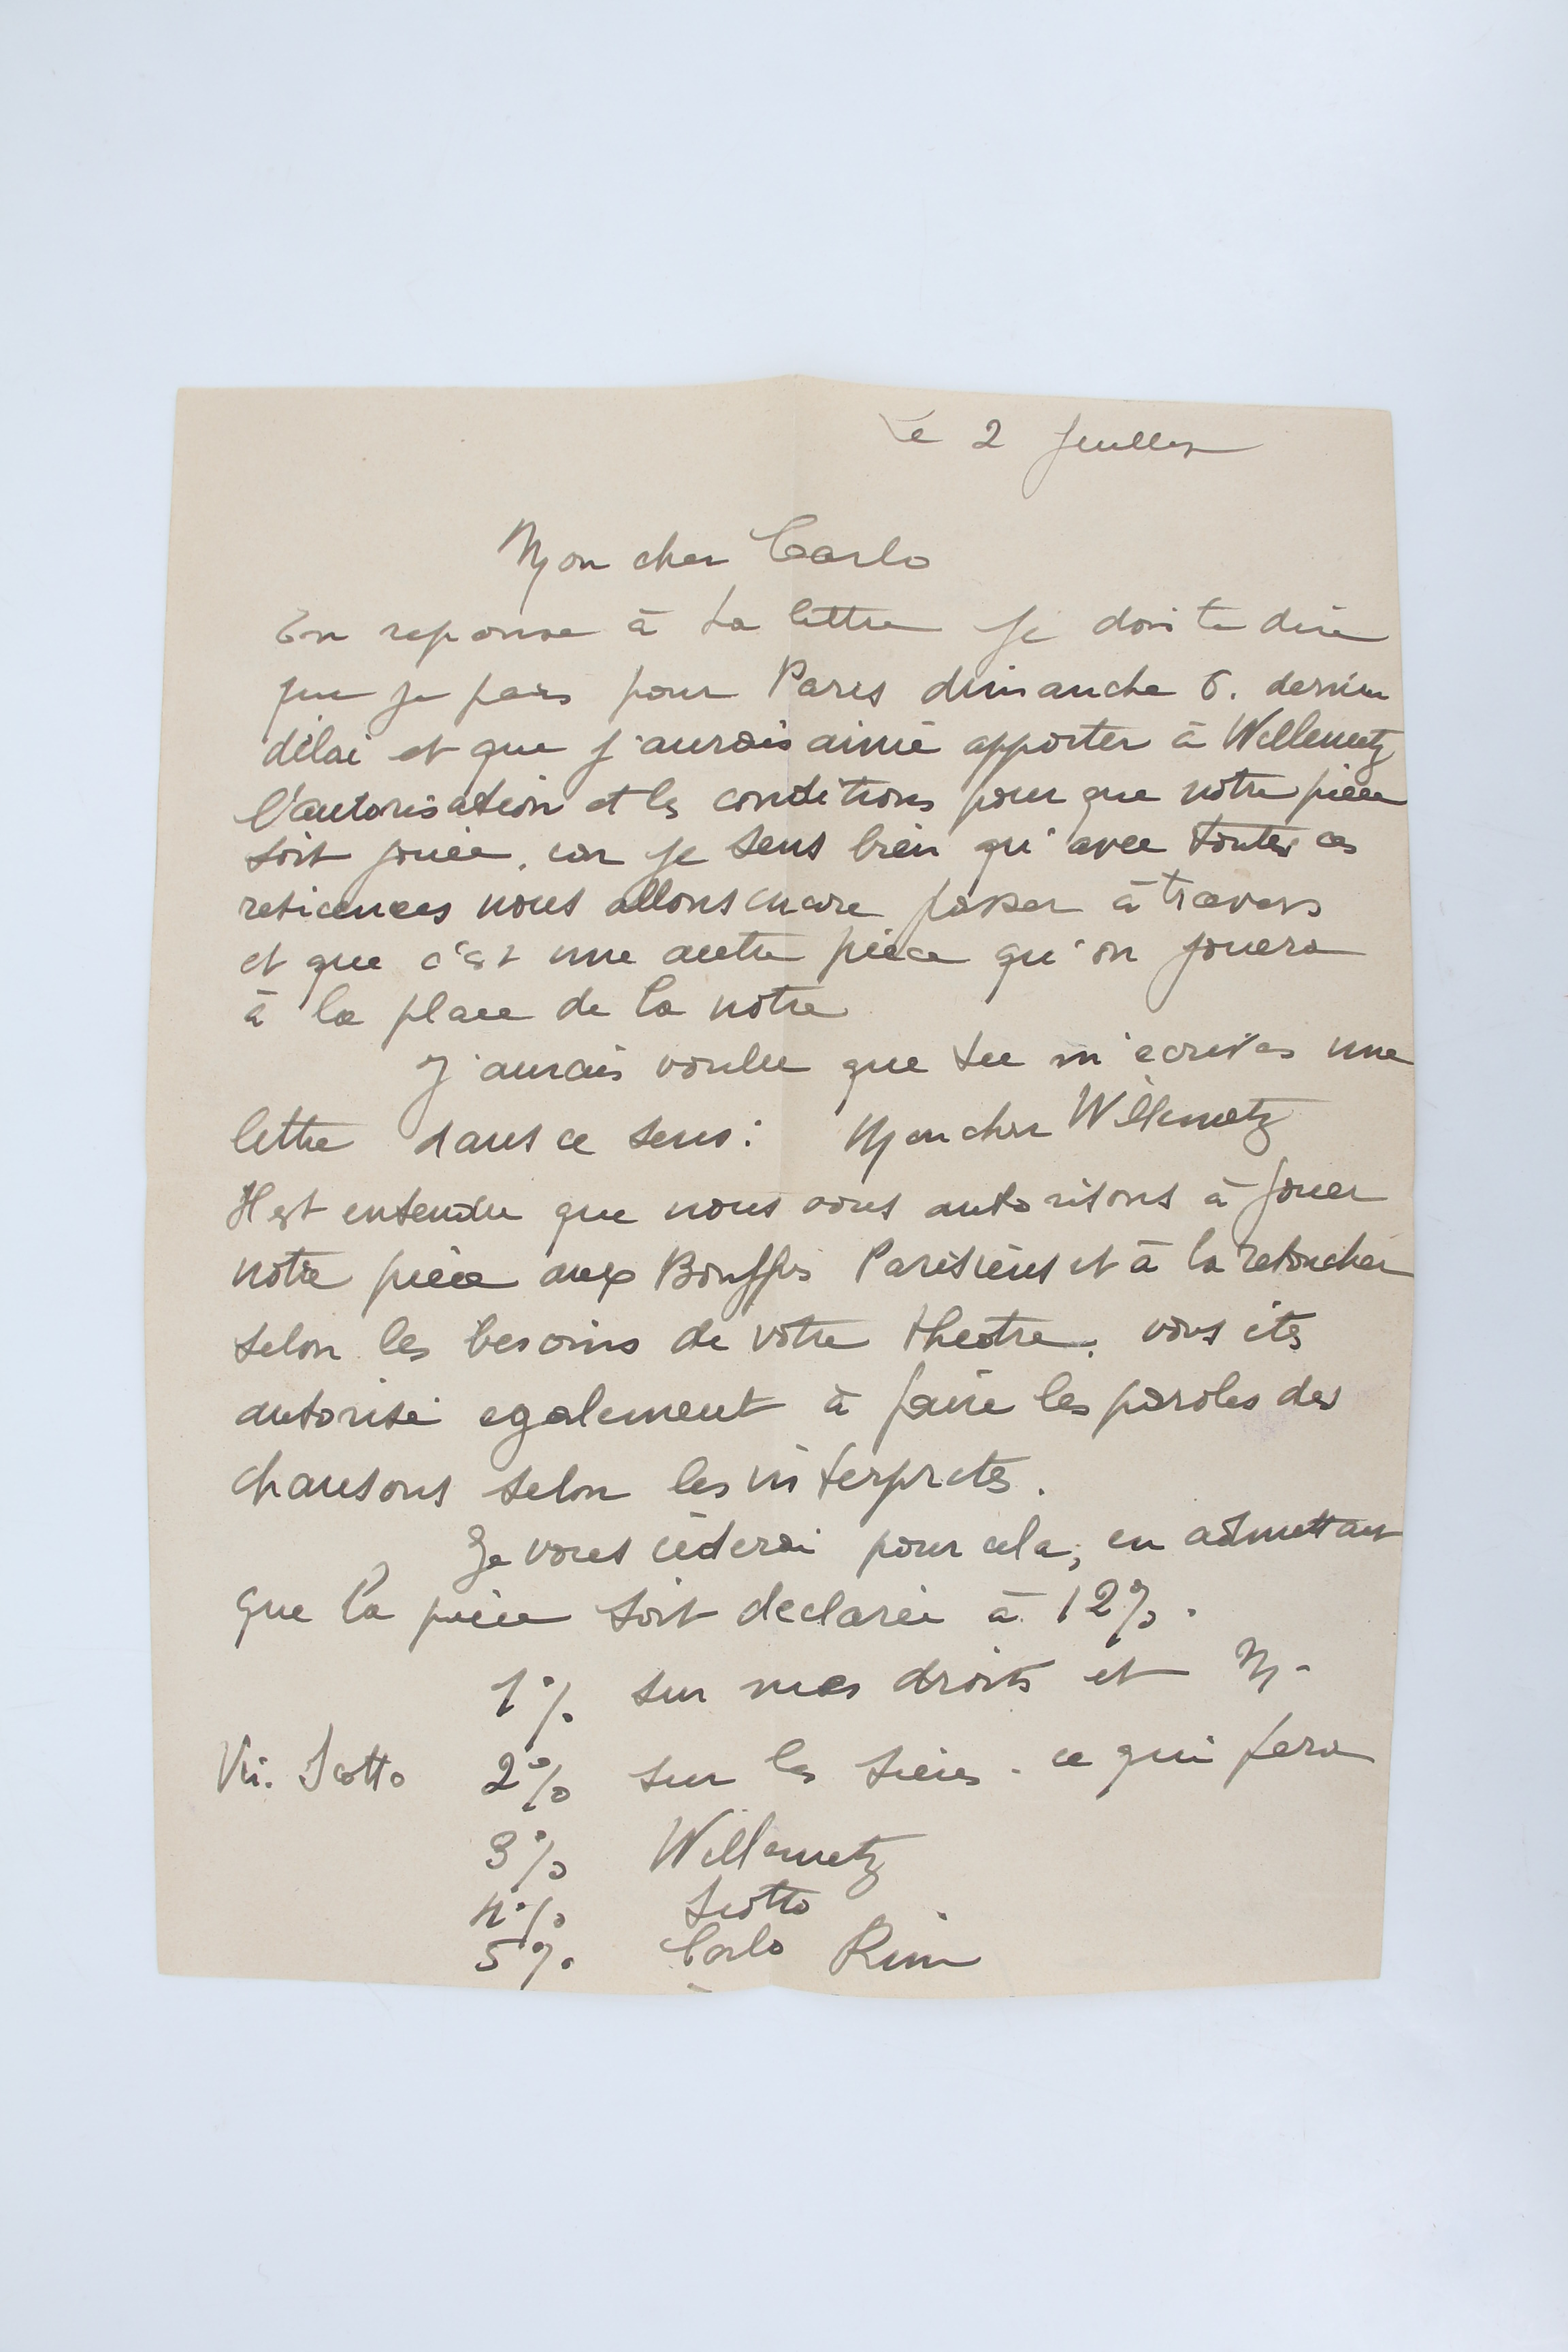 Le 2 Juillet
Mon cher Carlo
En reponse à ta lettre je dois te dire
que je pars pour Paris dimanche 6. dernier
délai et que j'aurais aimé apporter à Willemetz
l'autorisation et les conditions pour que notre pièce
soit jouée, car je sens bien qu'avec toutes ces
reticences nous allons encore passer à travers
et que c'est une autre pièce qu'on jouera
à la place de la notre
J'aurais voulu que tu m'ecrives une
lettre dans ce sens : Mon cher Willemetz
Il est entendu que nous vous autorisons à jouer
notre pièce aux Bouffes Parisiens et à la retoucher
selon les besoins de votre theatre. vous êtes
autorisé egalement à faire les paroles des
chansons selon les interpretes.
Je vous cèderai pour cela, en admettant
que la pièce soit declarée à 12%.
1% sur mes droits et M.
Vi. Scotto 2% sur les siens. ce qui fera
3% Willemetz
4% Scotto
5% Carlo Rim